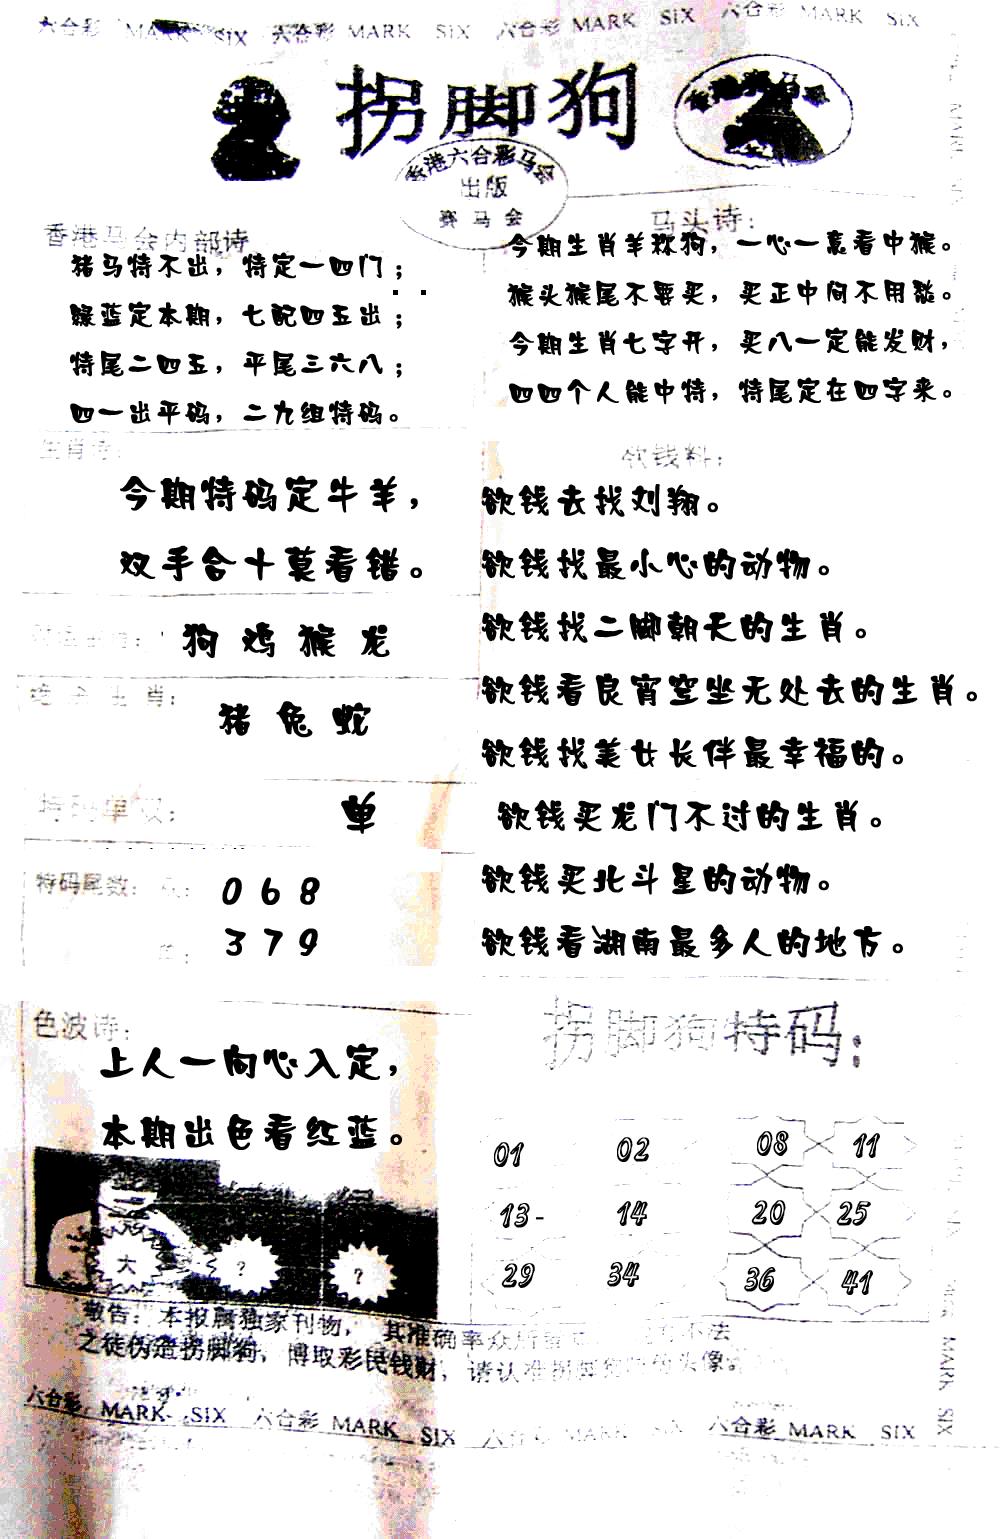 六合彩 MARK SIX 六合彩 MARK SIX 六合彩 MARK SIX 六合彩 MARK SIX
拐脚狗
香港六合彩马会
出版
赛马会
香港马会内部诗
猪马特不出，特定一四门；
绿蓝定本期，七配四五出；
特尾二四五，平尾三六八；
四一出平码，二九组特码。
马头诗：
今期生肖羊称狗，一心一意看中猴。
猴头猴尾不要买，买正中间不用愁。
今期生肖七字开，买八一定能发财，
四四个人能中特，特尾定在四字来。
生肖诗：
今期特码定牛羊，
双手合十莫看错。
狗 鸡 猴 龙
绝杀生肖：
猪 兔 蛇
特码单双：
单
特码尾数：
0 6 8
3 7 9
欲钱料：
欲钱去找刘翔。
欲钱找最小心的动物。
欲钱找二脚朝天的生肖。
欲钱看良宵空坐无处去的生肖。
欲钱找美女长伴最幸福的。
欲钱买龙门不过的生肖。
欲钱买北斗星的动物。
欲钱看湖南最多人的地方。
色波诗：
上人一向心入定，
本期出色看红蓝。
大 ? ?
拐脚狗特码：
01 02 08 11
13- 14 20 25
29 34 36 41
敬告：本报属独家刊物，其准确率众所 不法
之徒伪造拐脚狗，博取彩民钱财，请认准拐脚狗 头像
六合彩 MARK SIX 六合彩 MARK SIX 六合彩 MARK SIX 六合彩 MARK SIX
MARK SIX